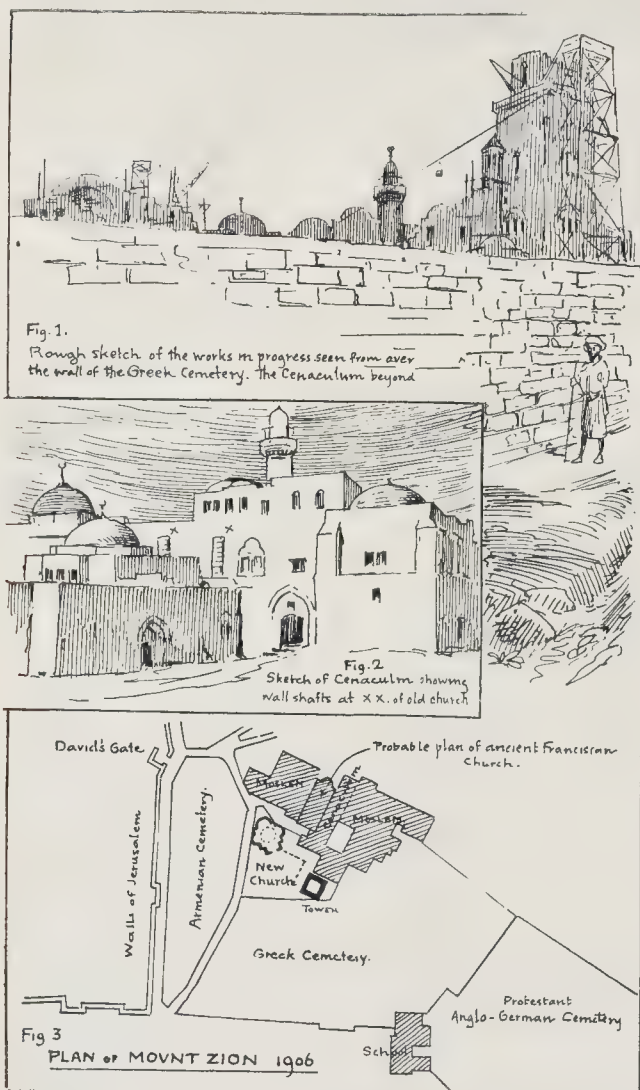 Fig. 1.
Rough sketch of the works in progress seen from over
the wall of the Greek Cemetery. The Cenaculum beyond
x x
Fig. 2
Sketch of Cenaculm showing
wall shafts at x x. of old church
David's Gate
Probable plan of ancient Franciscan
Church.
Walls of Jerusalem
Armenian Cemetery.
New
Church
Tower
Greek Cemetery.
Protestant
Anglo-German Cemetery
School
Fig 3
PLAN OF MOVNT ZION 1906